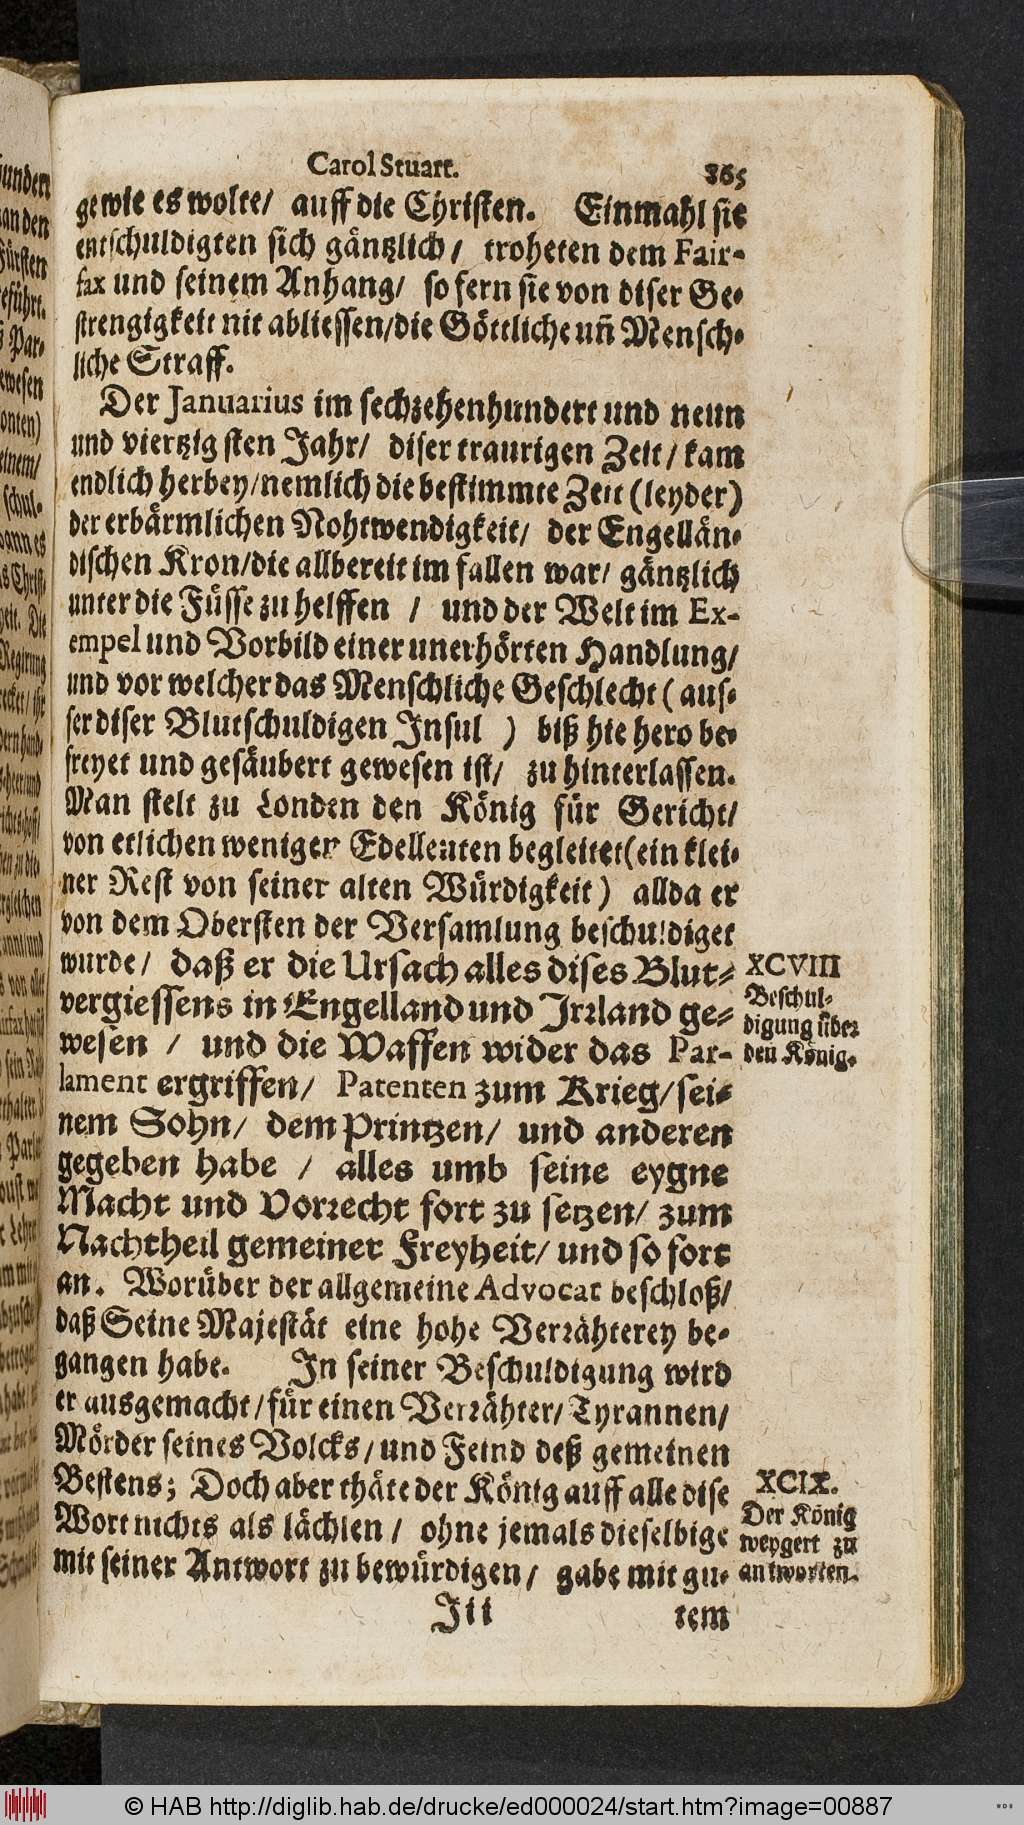 Carol Stuart. 865
ge wie es wolte/ auff die Christen. Einmahl sie
entschuldigten sich gäntzlich/ troheten dem Fair-
fax und seinem Anhang/ so fern sie von diser Ge-
strengigkeit nit abliessen/die Göttliche uñ Mensch-
liche Straff.
Der Januarius im sechzehenhundert und neun
und viertzig sten Jahr/ diser traurigen Zeit/ kam
endlich herbey/nemlich die bestimmte Zeit (leyder)
der erbärmlichen Nohtwendigkeit/ der Engellän-
dischen Kron/die allbereit im fallen war/ gäntzlich
unter die Füsse zu helffen / und der Welt im Ex-
empel und Vorbild einer unerhörten Handlung/
und vor welcher das Menschliche Geschlecht (aus-
ser diser Blutschuldigen Insul ) biß hie hero be-
freyet und gesäubert gewesen ist/ zu hinterlassen.
Man stelt zu Londen den König für Gericht/
von etlichen weniger Edelleuten begleitet(ein klei-
ner Rest von seiner alten Würdigkeit) allda er
von dem Obersten der Versamlung beschuldiget
wurde/ daß er die Ursach alles dises Blut-
vergiessens in Engelland und Irrland ge-
wesen / und die Waffen wider das Par-
lament ergriffen/ Patenten zum Krieg/sei-
nem Sohn/ dem Printzen/ und anderen
gegeben habe / alles umb seine eygne
Macht und Vorrecht fort zu setzen/ zum
Nachtheil gemeiner Freyheit/ und so fort
an. Worüber der allgemeine Advocat beschloß/
daß Seine Majestät eine hohe Verrähterey be-
gangen habe. In seiner Beschuldigung wird
er ausgemacht/für einen Verrähter/ Tyrannen/
Mörder seines Volcks/und Feind deß gemeinen
Bestens; Doch aber thäte der König auff alle dise
Wort nichts als lächlen/ ohne jemals dieselbige
mit seiner Antwort zu bewürdigen/ gabe mit gu-
Iii tem
XCVIII
Beschul-
digung über
den König.
XCIX.
Der König
weygert zu
antworten.
© HAB http://diglib.hab.de/drucke/ed000024/start.htm?image=00887